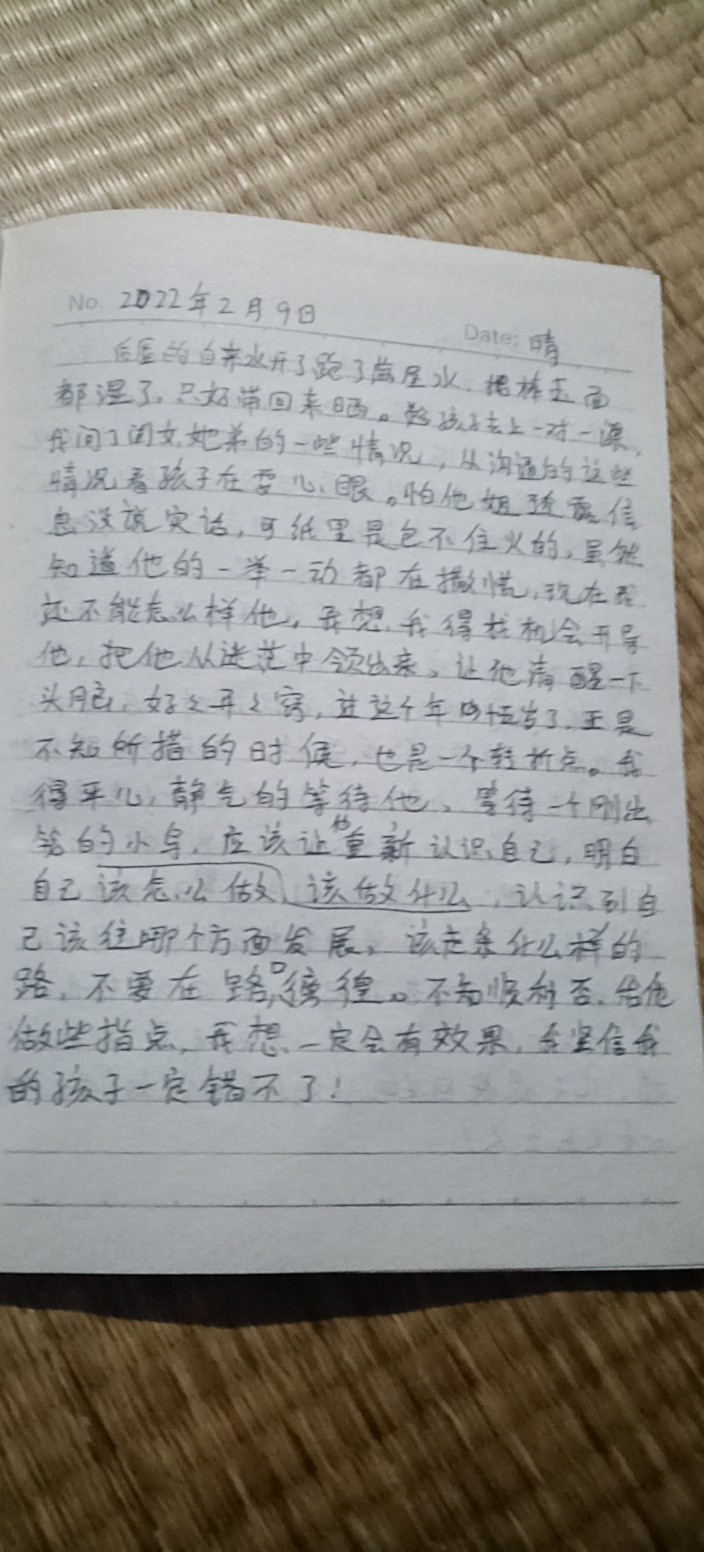 No. 2022年2月9日
Date: 晴
后屋的自来水开了跑了满屋水，把棒玉面
都湿了，只好带回来晒。趁孩子去上一对一课，
我问了闺女她弟的一些情况，从沟通的这些
情况看孩子在耍心眼。怕他姐透露信
息没说实话，可纸里是包不住火的，虽然
知道他的一举一动都在撒慌，现在我
还不能怎么样他，我想我得找机会开导
他，把他从迷茫中领出来，让他清醒一下
头脑，好々开々窍，过这个年岁了，正是
不知所措的时候，也是一个转折点。我
得平心静气的等待他、等待一个刚出
的小鸟，应该让他重新认识自己，明白
自己该怎么做、该做什么，认识到自
己该往哪个方面发展，该走条什么样的
路，不要在路口徬徨。不知顺利否，给他
做些指点，我想一定会有效果，我坚信我
的孩子一定错不了！